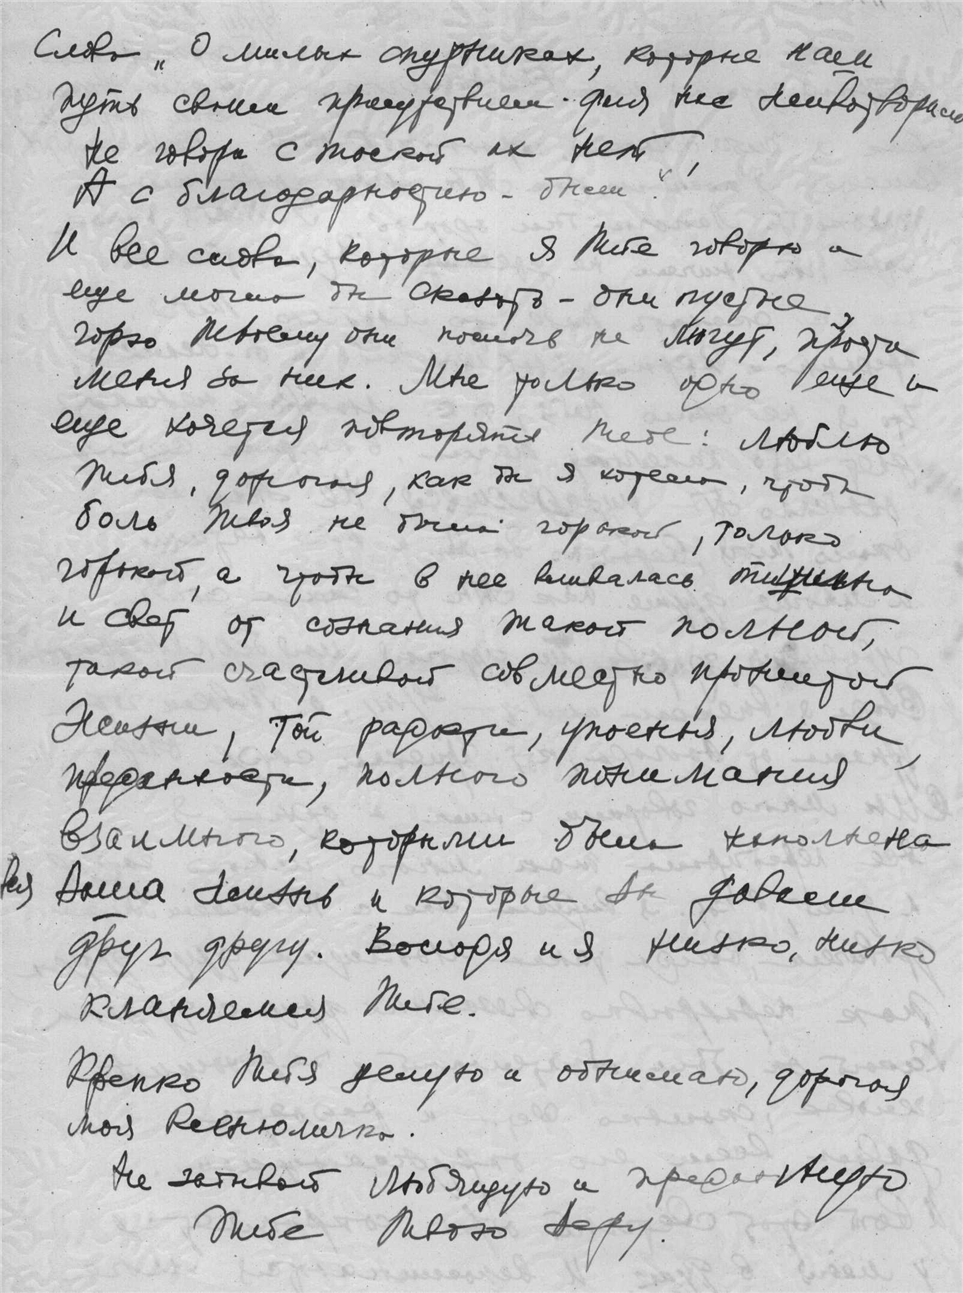 Слова „О милых спутниках, которые нам
путь своим присутствием для нас животворили
Не говори с тоской их нет,
А с благодарностию – были".
И все слова, которые я Тебе говорю и
еще могла бы сказать – они пустые,
горю Твоему они помочь не могут, прости
меня за них. Мне только одно еще и
еще хочется повторять Тебе: люблю
Тебя, дорогая, как бы я хотела, чтобы
боль Твоя не была горькой, только
горькой, а чтобы в нее вливалась тишина
и свет от сознания такой полной,
такой счастливой совместно прожитой
Жизни, той радости, упоенья, любви,
преданности, полного понимания
взаимного, которыми была наполнена
вся Ваша Жизнь и которые Вы давали
друг другу. Володя и я низко, низко
кланяемся Тебе.
Крепко Тебя целую и обнимаю, дорогая
моя
Не забывай любящую и преданную
Тебе Твою Веру.